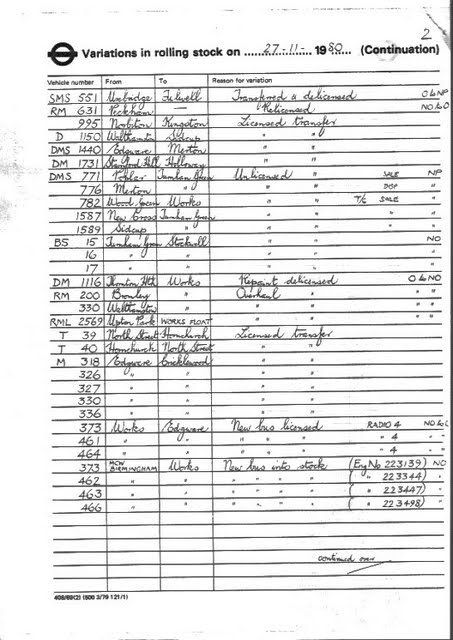 2
Variations in rolling stock on 27-11- 1980 (Continuation)
Vehicle number From To Reason for variation
SMS 551 Uxbridge Fulwell Transferred & delicensed O to NP
RM 631 Peckham " " Relicensed NO to O
995 Norbiton Kingston Licensed transfer
D 1150 Walthamstow Sidcup " "
DMS 1440 Edgware Merton " "
DM 1731 Stamford Hill Holloway " "
DMS 771 Poplar Turnham Green Unlicensed " SALE NP
776 Merton " " " DISP "
782 Wood Green Works " " T/E SALE "
1587 New Cross Turnham Green " " "
1589 Sidcup " " " "
BS 15 Turnham Green Stockwell " " NO
16 " " " " "
17 " " " " "
DM 1116 Thornton Hth Works Repaint delicensed O to NO
RM 200 Bromley " Overhaul " " "
330 Walthamstow " " " " "
RML 2569 Upton Park WORKS FLOAT " " " "
T 39 North Street Hornchurch Licensed transfer
T 40 Hornchurch North Street " "
M 318 Edgware Cricklewood " "
326 " " " "
327 " " " "
330 " " " "
336 " " " "
373 Works Edgware New bus licensed RADIO 4 NO to O
461 " " " " " " 4 "
464 " " " " " " 4 "
373 MCW BIRMINGHAM Works New bus into stock (Eng No 223139) NO
462 " " " " " " ( " 223344) "
463 " " " " " " ( " 223447) "
466 " " " " " " ( " 223498) "
continued over
408/69(2) (500 3/79 121/1)